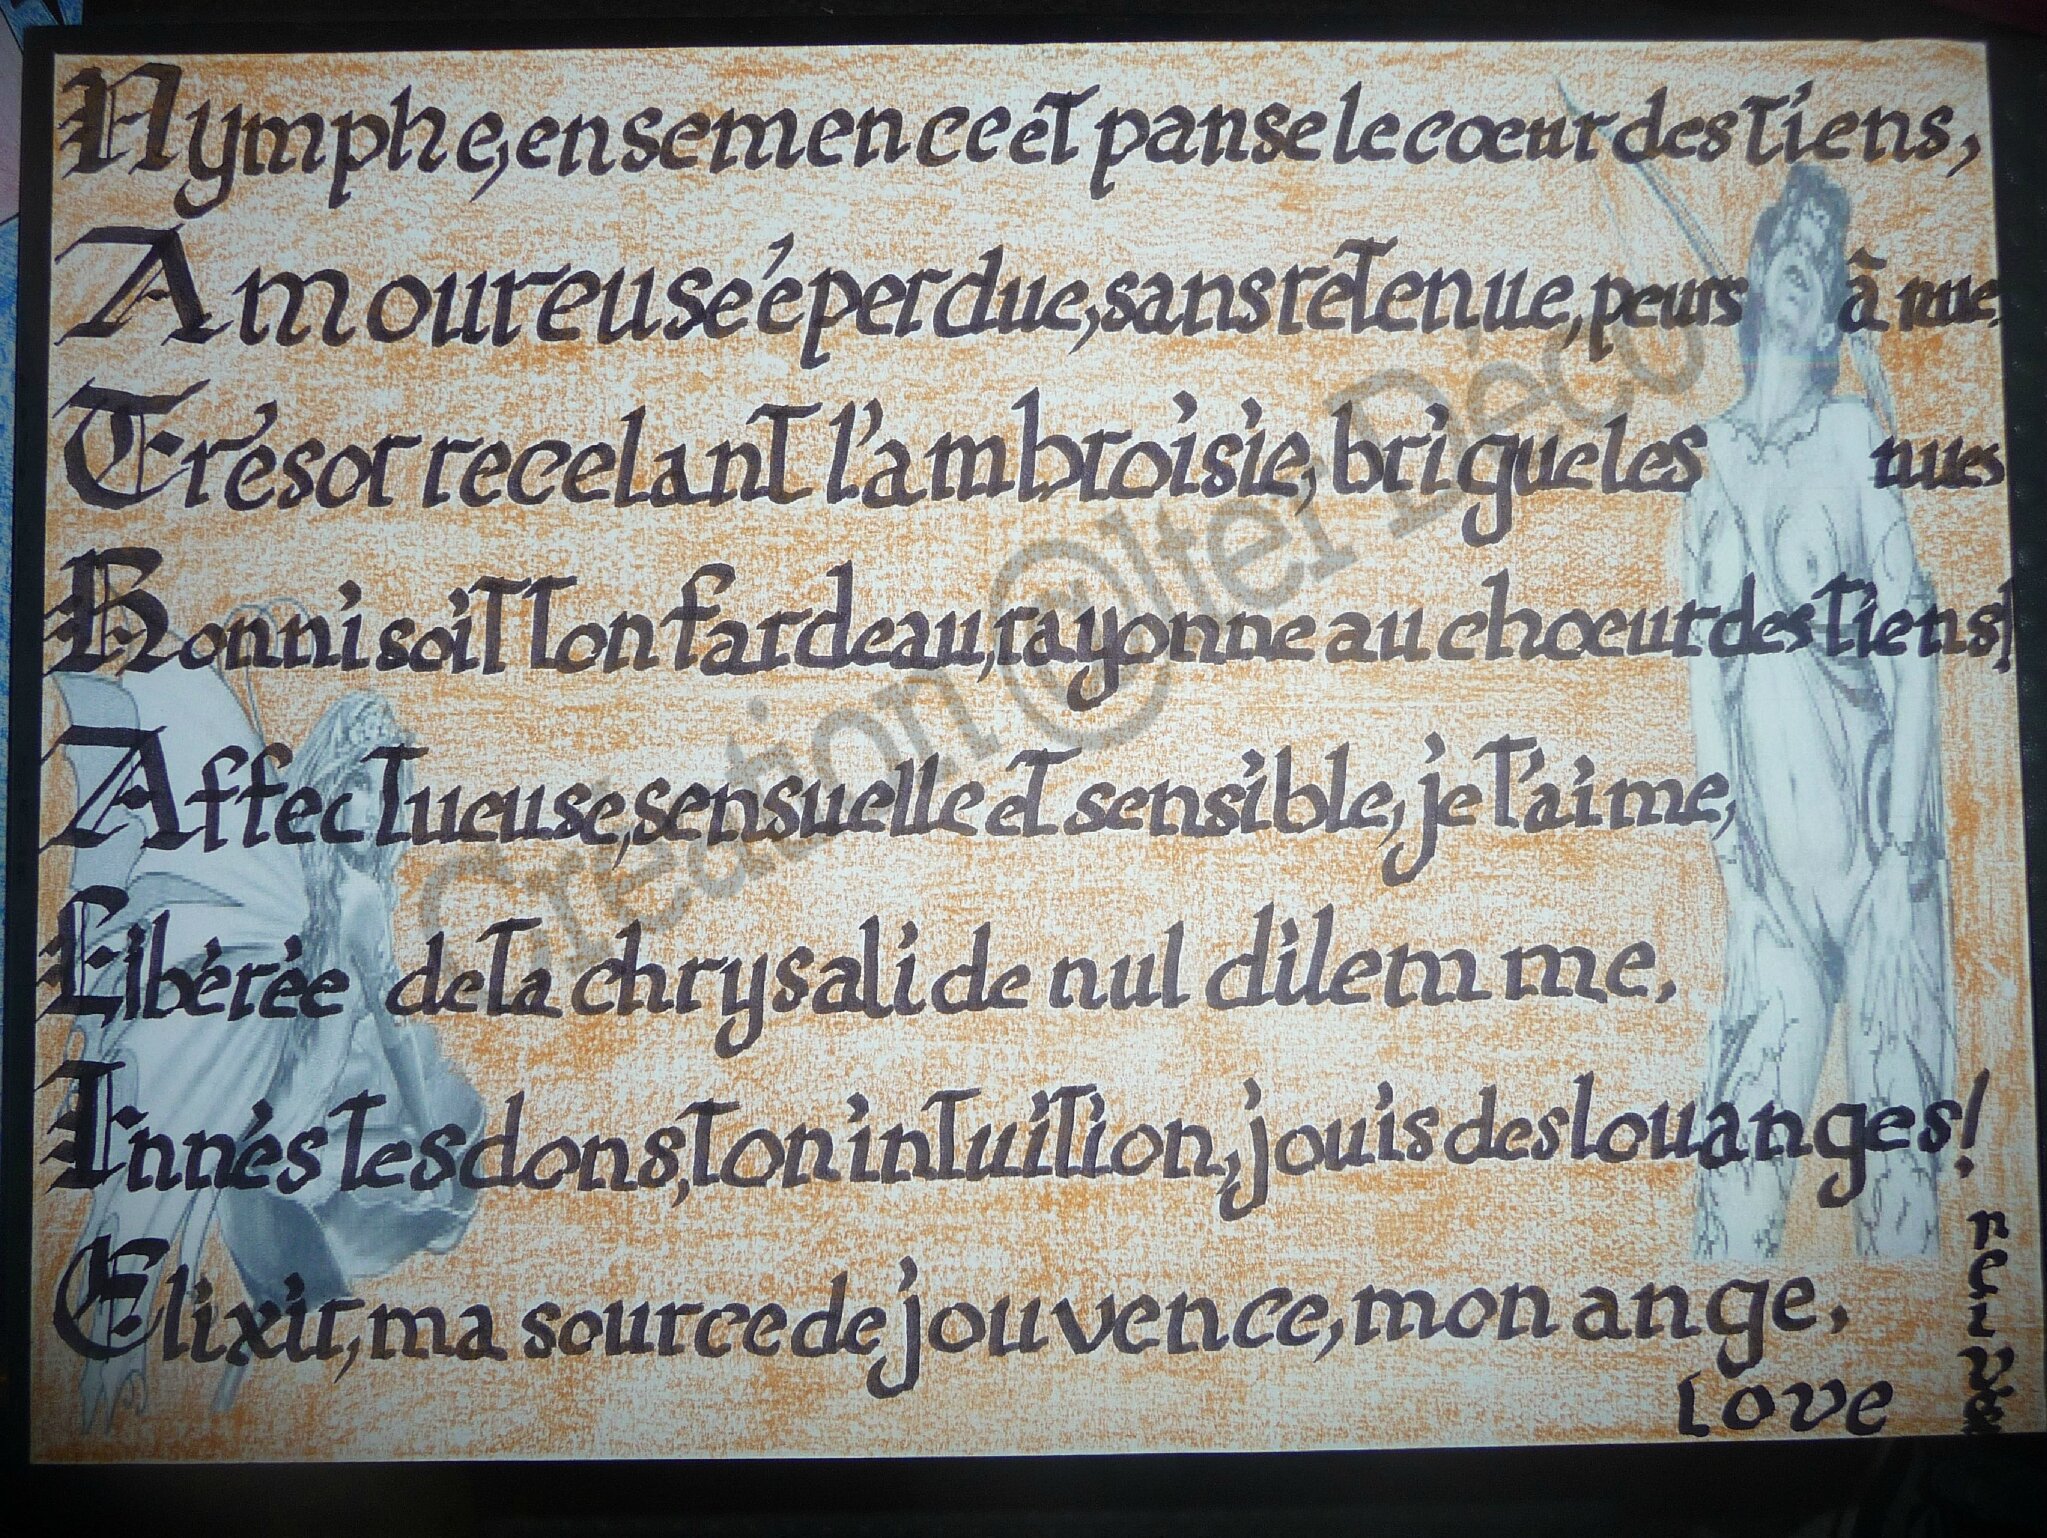 Nymphe, ensemence et panse le cœur des tiens,
Amoureuse éperdue, sans retenue, peurs à nue,
Trésor recelant l'ambroisie, brigue les nues
Bonni soit ton fardeau, rayonne au chœur des tiens!
Affectueuse, sensuelle et sensible, je t'aime,
Libérée de ta chrysalide nul dilemme,
Innés tes dons, ton intuition, jouis des louanges!
Elixir, ma source de jouvence, mon ange,
love
Création @lter Déco